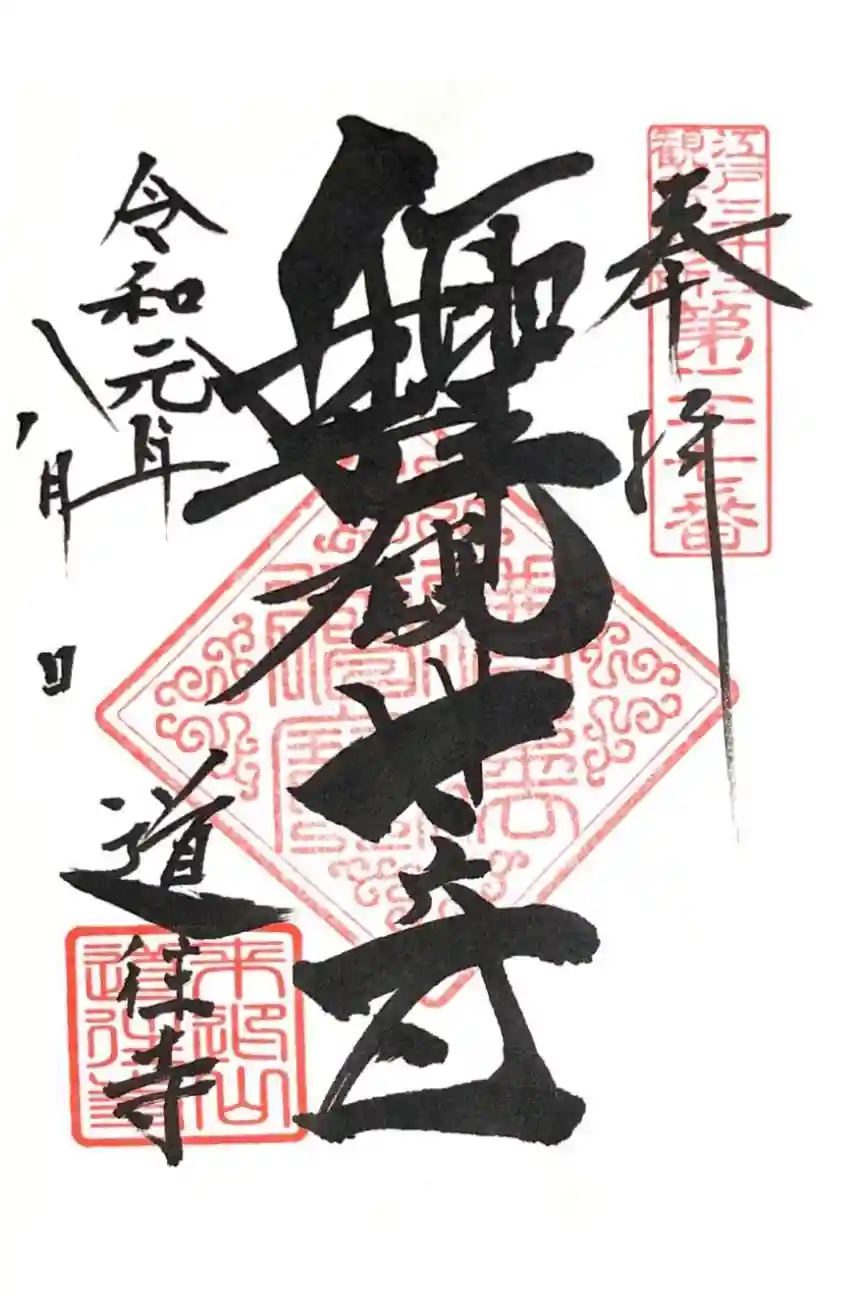 奉拝
江戸三十三
観音札所第二十七番
観世音
令和元年
八月 日
道往寺
来迎山
道往寺